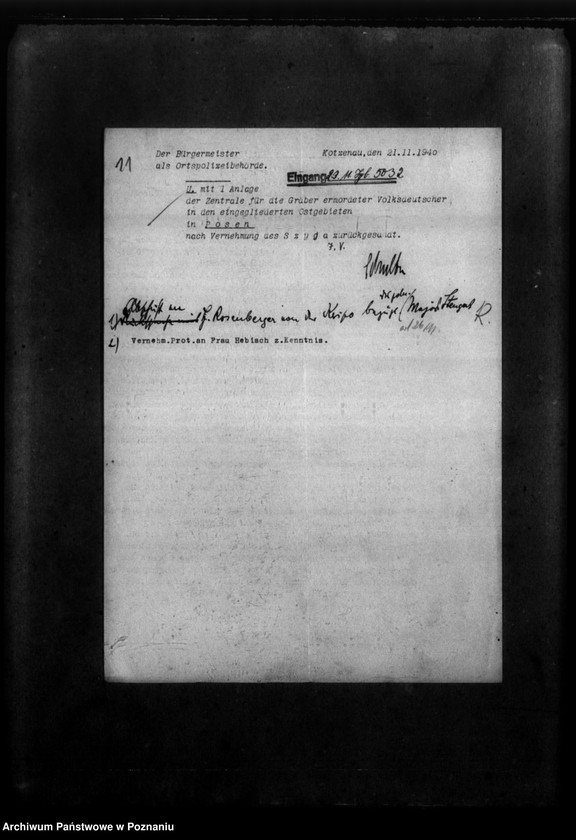 11
Der Bürgermeister
als Ortspolizeibehörde.
Kotzenau, den 21.11.1940
Eingang 29. 11 Tgb. 5032
U. mit 1 Anlage
der Zentrale für die Gräber ermordeter Volksdeutscher
in den eingegliederten Ostgebieten
in Posen
nach Vernehmung des S z y d a zurückgesandt.
J. V.
Abschrift an
1) Rosenberger von der Kripo
2) Vernehm.Prot.an Frau Hebisch z.Kenntnis.
Archiwum Państwowe w Poznaniu